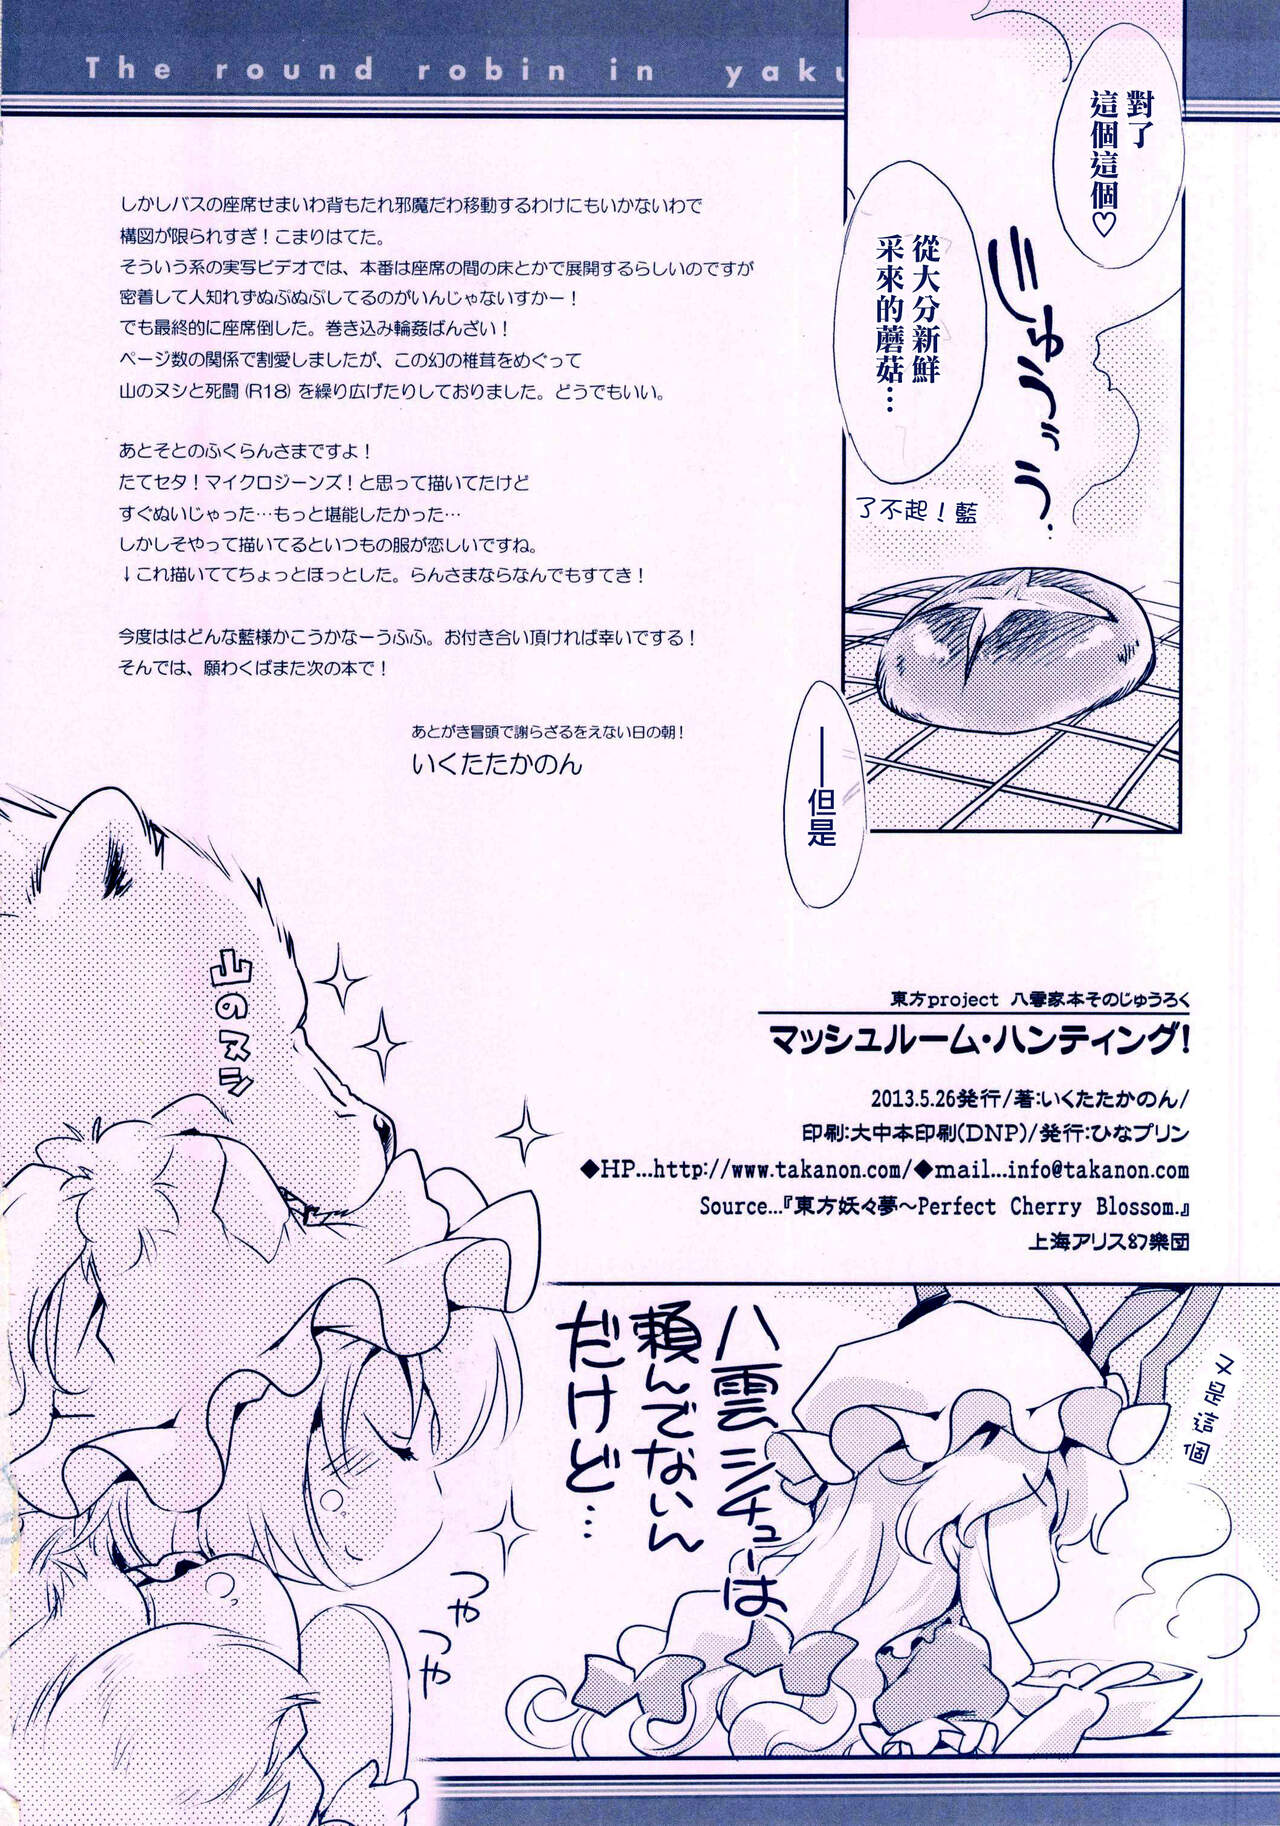 The round robin in yaku
對了
這個這個♡
從大分新鮮
采來的蘑菇…
じゅうぅっ…
了不起！藍
——但是
しかしバスの座席せまいわ背もたれ邪魔だわ移動するわけにもいかないわで
構図が限られすぎ！こまりはてた。
そういう系の実写ビデオでは、本番は座席の間の床とかで展開するらしいのですが
密着して人知れずぬぷぬぷしてるのがいんじゃないすかー！
でも最終的に座席倒した。巻き込み輪姦ばんざい！
ページ数の関係で割愛しましたが、この幻の椎茸をめぐって
山のヌシと死闘(R18)を繰り広げたりしておりました。どうでもいい。
あとそとのふくらんさまですよ！
たてセタ！マイクロジーンズ！と思って描いてたけど
すぐぬいじゃった…もっと堪能したかった…
しかしそやって描いてるといつもの服が恋しいですね。
↓これ描いててちょっとほっとした。らんさまならなんでもすてき！
今度ははどんな藍様かこうかなーうふふ。お付き合い頂ければ幸いでする！
そんでは、願わくばまた次の本で！
あとがき冒頭で謝らざるをえない日の朝！
いくたたかのん
山のヌシ
東方project 八雲家本そのじゅうろく
マッシュルーム・ハンティング！
2013.5.26発行/著:いくたたかのん/
印刷:大中本印刷(DNP)/発行:ひなプリン
◆HP...http://www.takanon.com/◆mail...info@takanon.com
Source...『東方妖々夢〜Perfect Cherry Blossom.』
上海アリス幻樂団
又是這個
八雲シチューは
頼んでないん
だけど…
つやつや